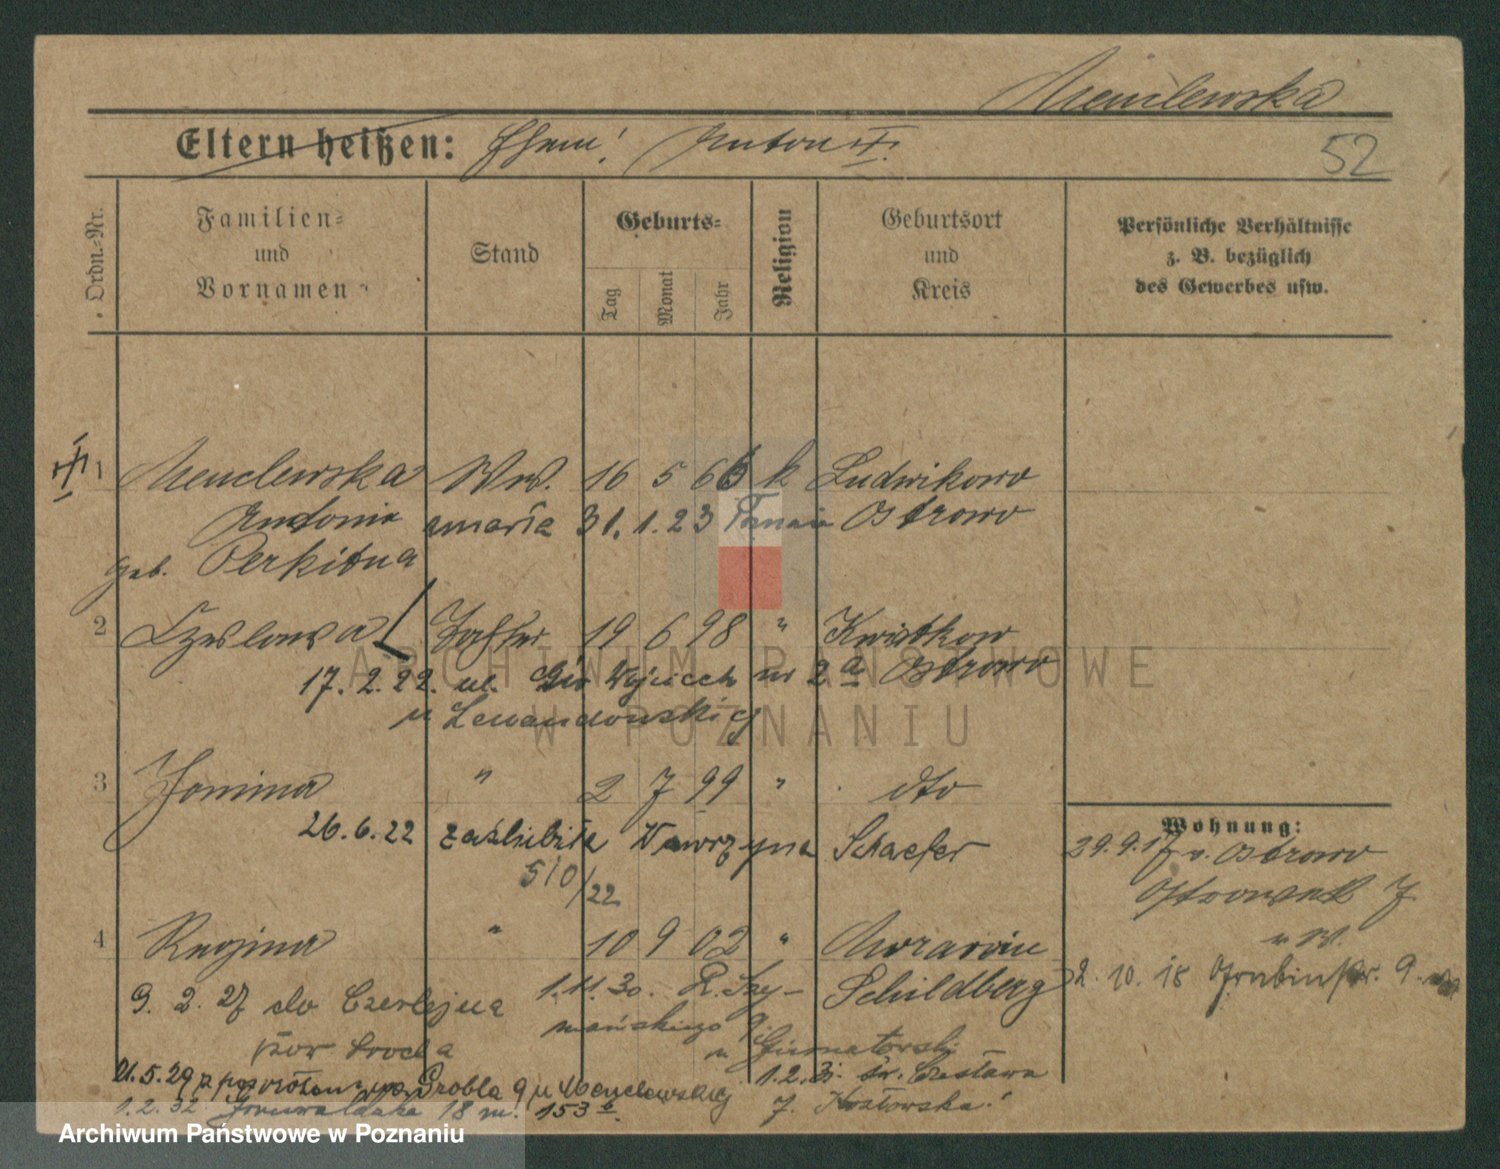 Menclewska
Eltern heißen: Ehem. Anton
52
Ordn.-Nr.
Familien-
und
Vornamen
Stand
Geburts-
Tag
Monat
Jahr
Religion
Geburtsort
und
Kreis
Persönliche Verhältnisse
z. B. bezüglich
des Gewerbes usw.
1 Menclewska Ww. 16 5 66 k Ludwikowo
Antonie zmarła 31. 1. 23 Ostrowo
geb. Perkitna
2 Czeslawa Tochter 19 6 98 " Kwiatkow
17. 2. 22. ul. Św Wojciech nr 2a Ostrowo
u Lewandowskiej
3 Janina " 2 7 99 " dto
26.6.22 zaślubiła Wawrzyna Schaefer
510/22
Wohnung:
29.9.17 v. Ostrowo
7
4 Regina " 10 9 02 "
Schildberg
2. 10. 18 Grabenstr. 9.
9. 2. 27 do Czerlejna
pow Środa
1.11.30. Pl. Szy-
mańskiego 9
u
21.5.29 z powrotem Grobla 9 u Menclewskiej
1.2.31 św. Czesława
7. Kozłowska
1.2.32 Grunwaldzka 18 m. 153
ARCHIWUM PAŃSTWOWE
W POZNANIU
Archiwum Państwowe w Poznaniu